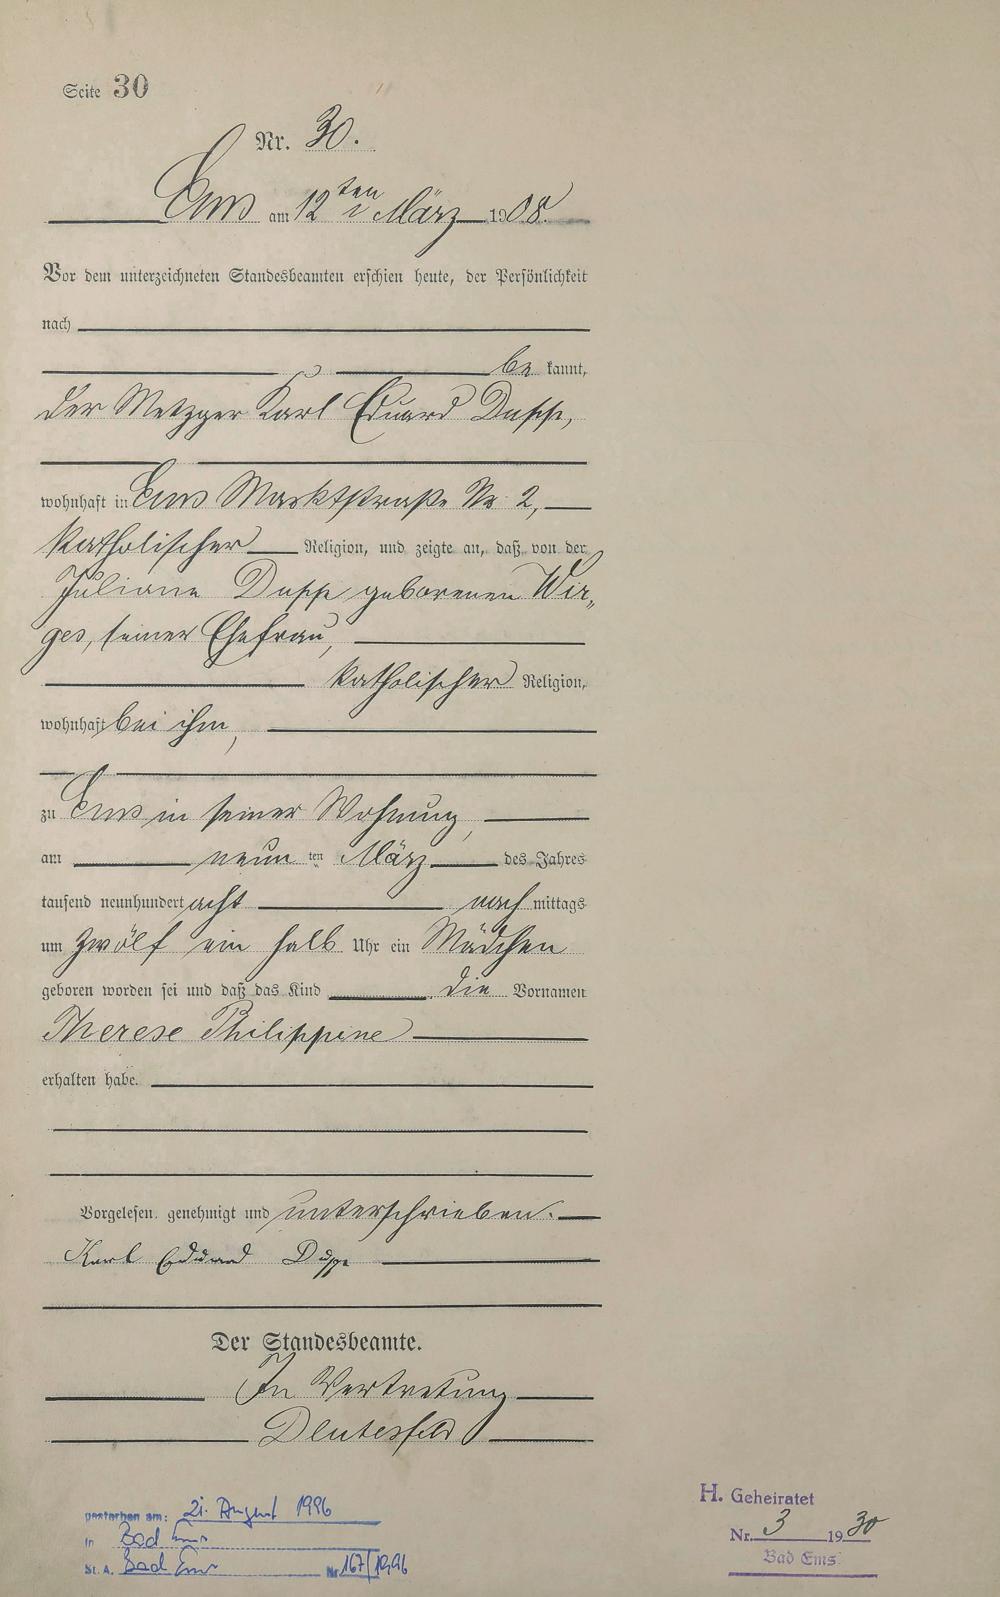 Seite 30
Nr. 30.
Ems am 12ten März 1908.
Vor dem unterzeichneten Standesbeamten erschien heute, der Persönlichkeit
nach
be kannt,
der Metzger Karl Eduard Dupp,
wohnhaft in Ems Marktstraße Nr. 2,
katholischer Religion, und zeigte an, daß von der
Juliana Dupp geborenen Wir„
ges, seiner Ehefrau,
katholischer Religion,
wohnhaft bei ihm,
zu Ems in seiner Wohnung,
am neun ten März des Jahres
tausend neunhundert acht nach mittags
um zwölf ein halb Uhr ein Mädchen
geboren worden sei und daß das Kind die Vornamen
Therese Philippine
erhalten habe.
Vorgelesen, genehmigt und unterschrieben.
Karl Eduard Dupp
Der Standesbeamte.
In Vertretung
gestorben am: 21. August 1996
in Bad Ems
St. A. Bad Ems Nr 167/1996
H. Geheiratet
Nr. 3 1930
Bad Ems